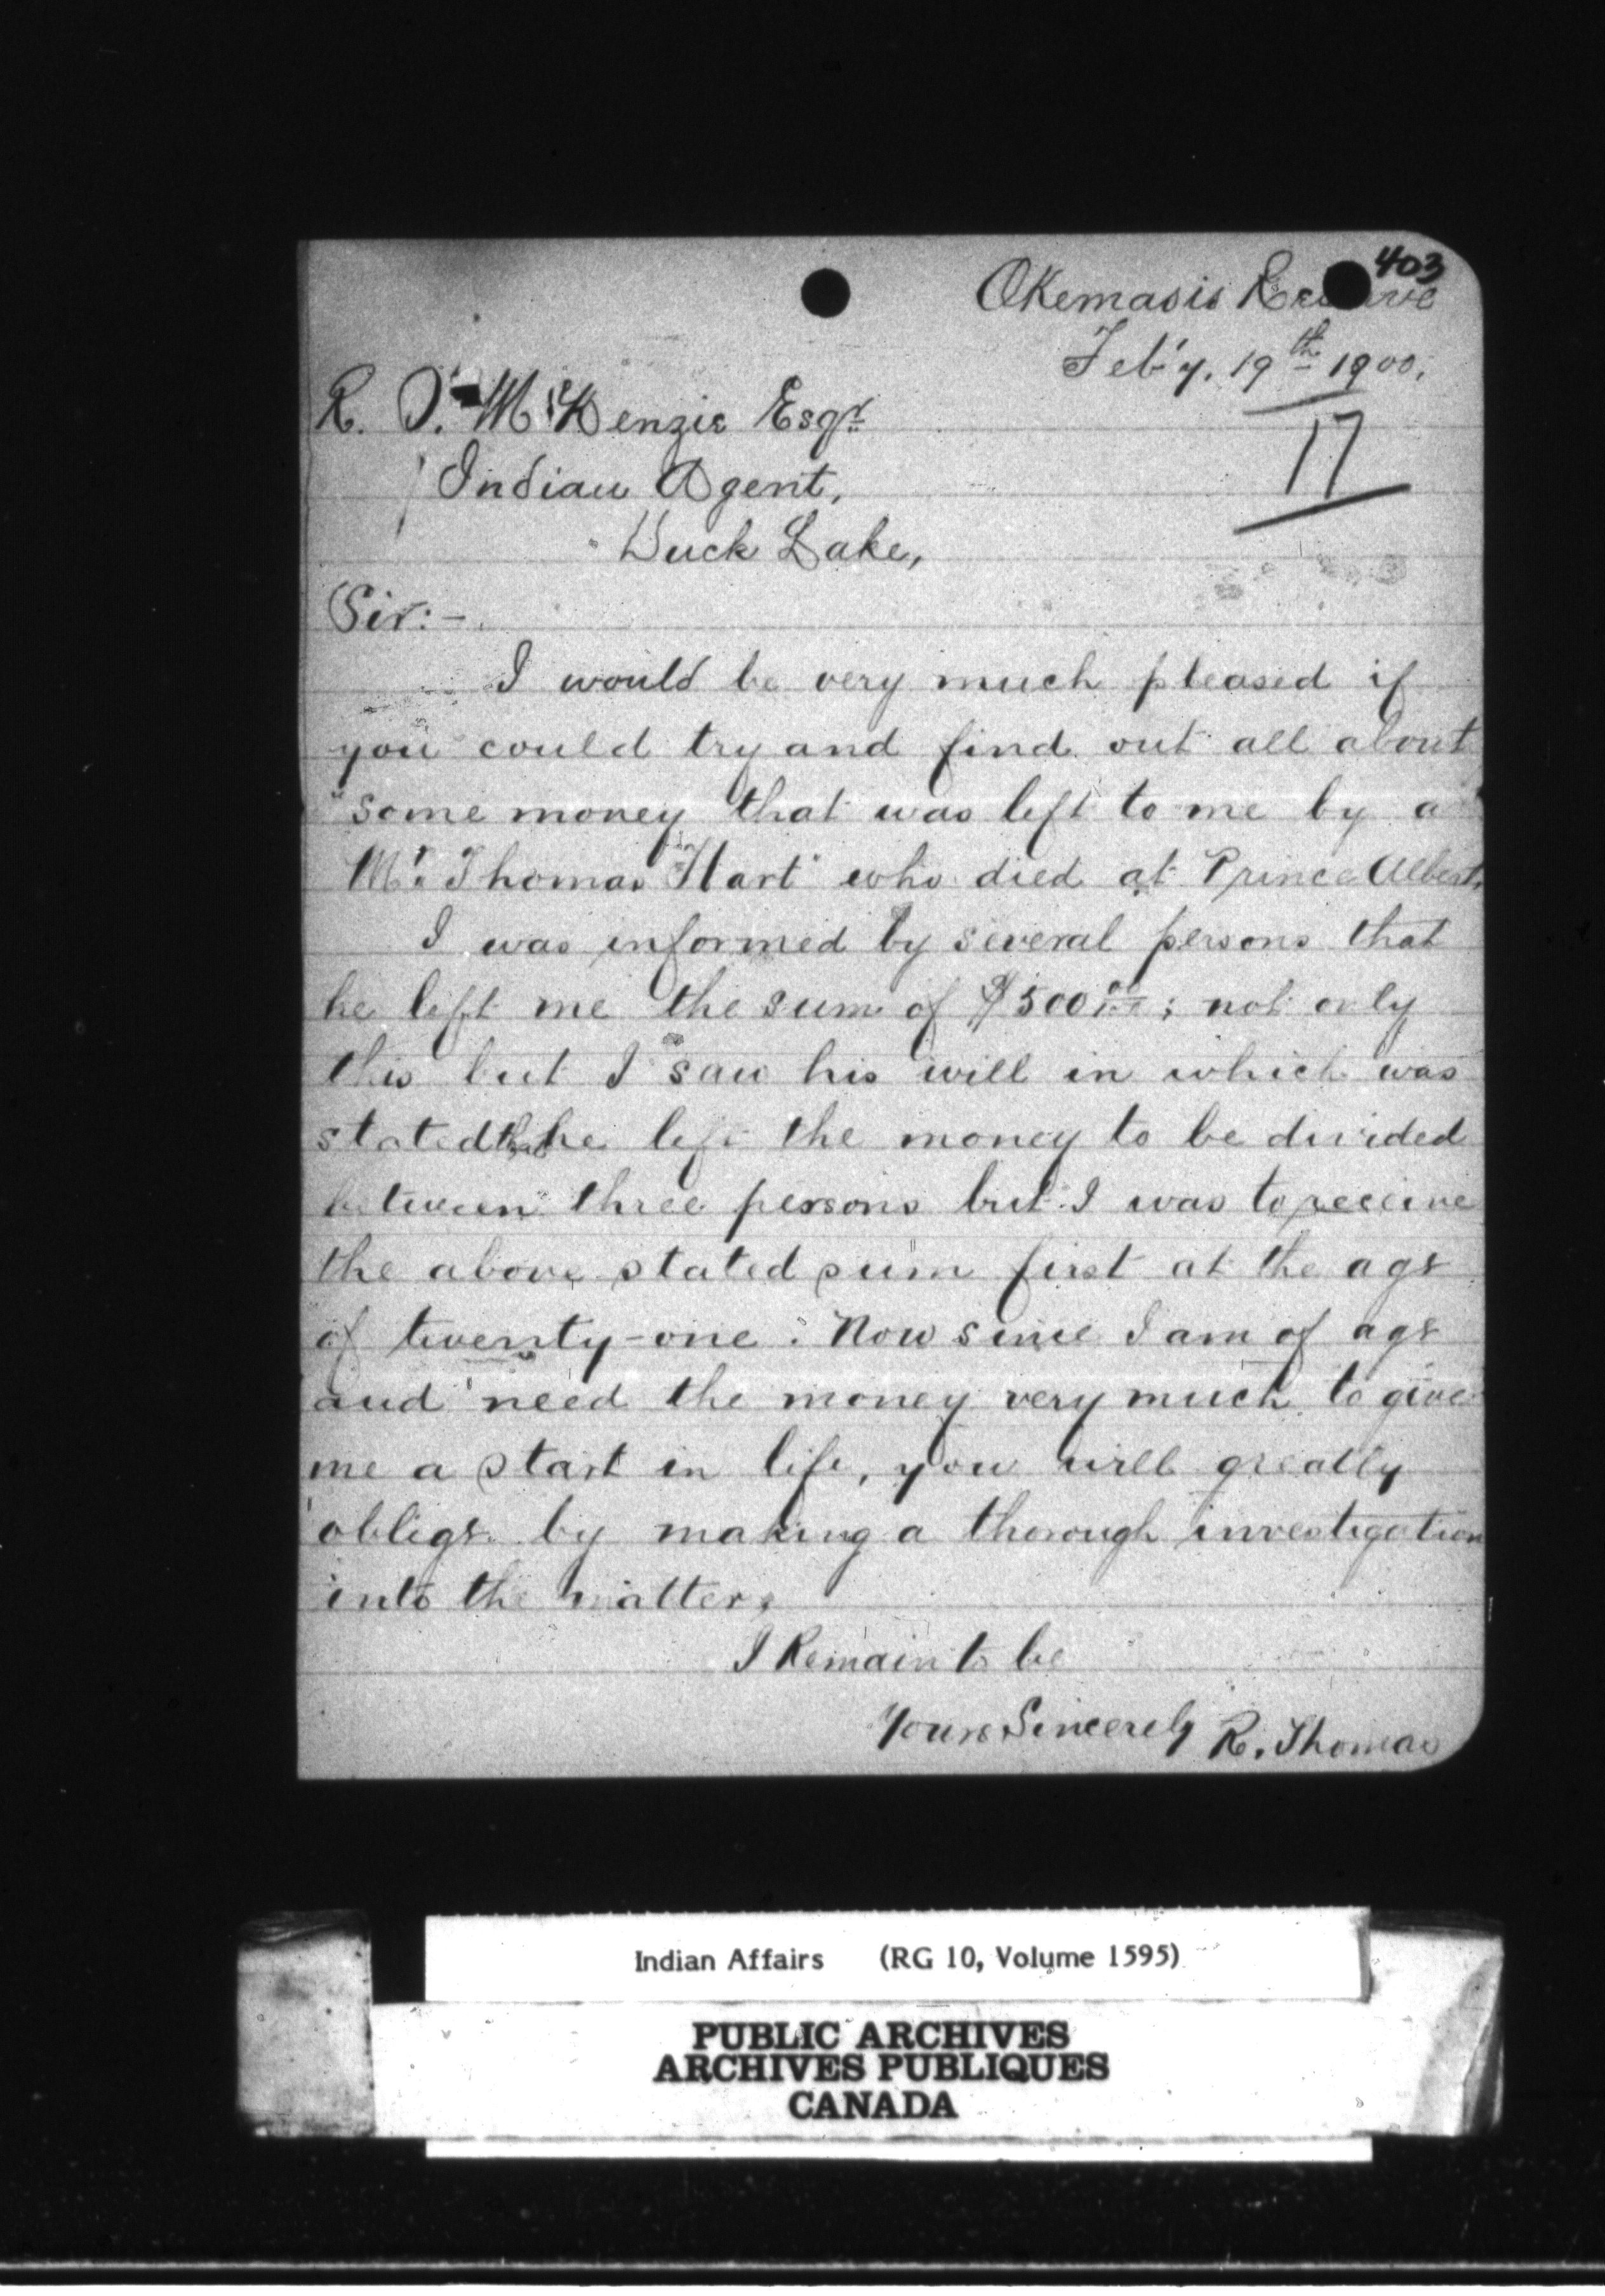 403
Okemasis Reserve
Feb'y. 19th 1900.
17
R. S. McKenzie Esqr.
Indian Agent,
Duck Lake,
Sir:-
I would be very much pleased if
you could try and find out all about
some money that was left to me by a
Mr. Thomas Hart who died at Prince Albert.
I was informed by several persons that
he left me the sum of $500.00; not only
this but I saw his will in which was
stated that he left the money to be divided
between three persons but I was to receive
the above stated sum first at the age
of twenty-one. Now since I am of age
and need the money very much to give
me a start in life, you will greatly
oblige by making a thorough investigation
into the matter.
I Remain to be
Yours Sincerely R. Thomas
Indian Affairs (RG 10, Volume 1595)
PUBLIC ARCHIVES
ARCHIVES PUBLIQUES
CANADA